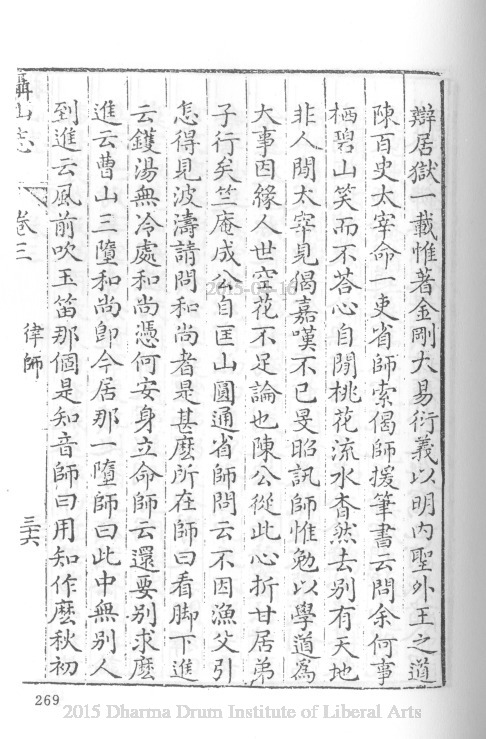 辯居獄一載惟著金剛大易衍義以明內聖外王之道
陳百史太宰命一吏省師索偈師援筆書云問余何事
栖碧山笑而不荅心自閒桃花流水杳然去別有天地
非人間太宰見偈嘉嘆不已旻昭訊師惟勉以學道為
大事因緣人世空花不足論也陳公從此心折甘居弟
子行矣竺庵成公自匡山圓通省師問云不因漁父引
怎得見波濤請問和尚者是甚麽所在師曰看脚下進
云鑊湯無冷處和尚憑何安身立命師云還要別求麽
進云曹山三墮和尚卽今居那一墮師曰此中無別人
到進云風前吹玉笛那個是知音師曰用知作麽秋初
攝山志 卷三 律師 三六
269
2015-03-16
2015 Dharma Drum Institute of Liberal Arts